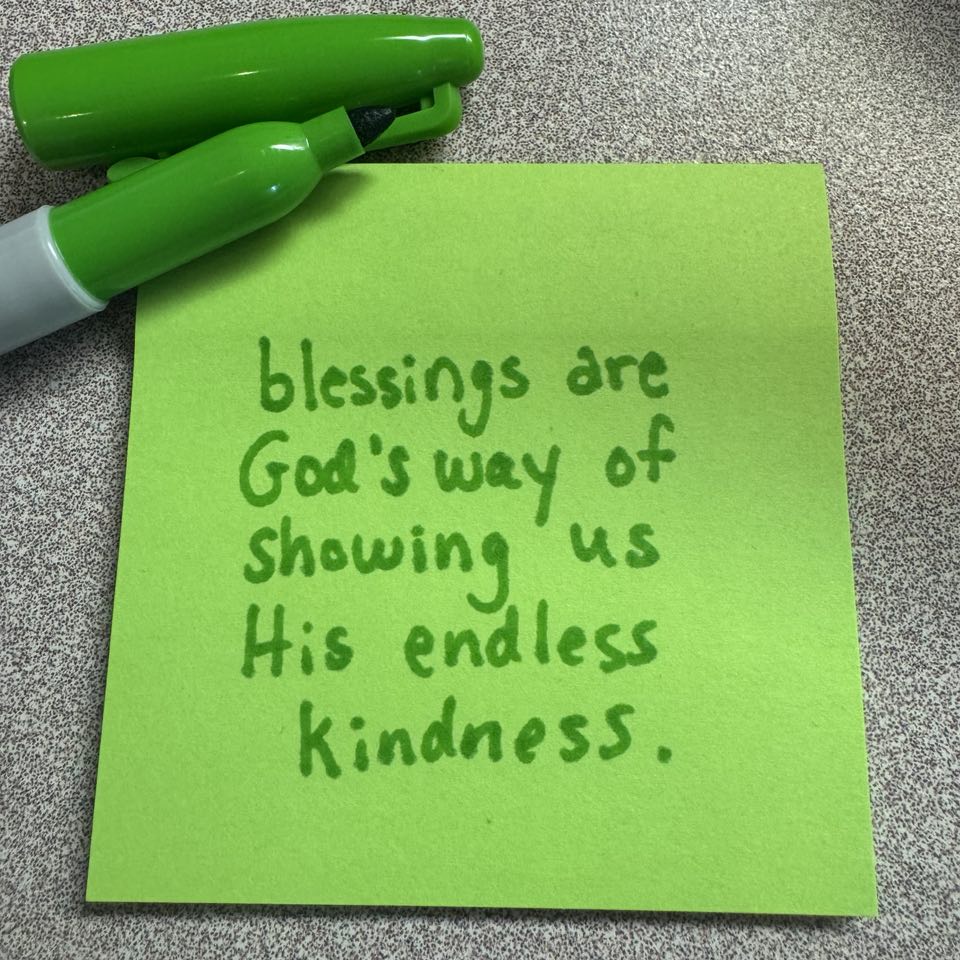 blessings are
God's way of
showing us
His endless
kindness.